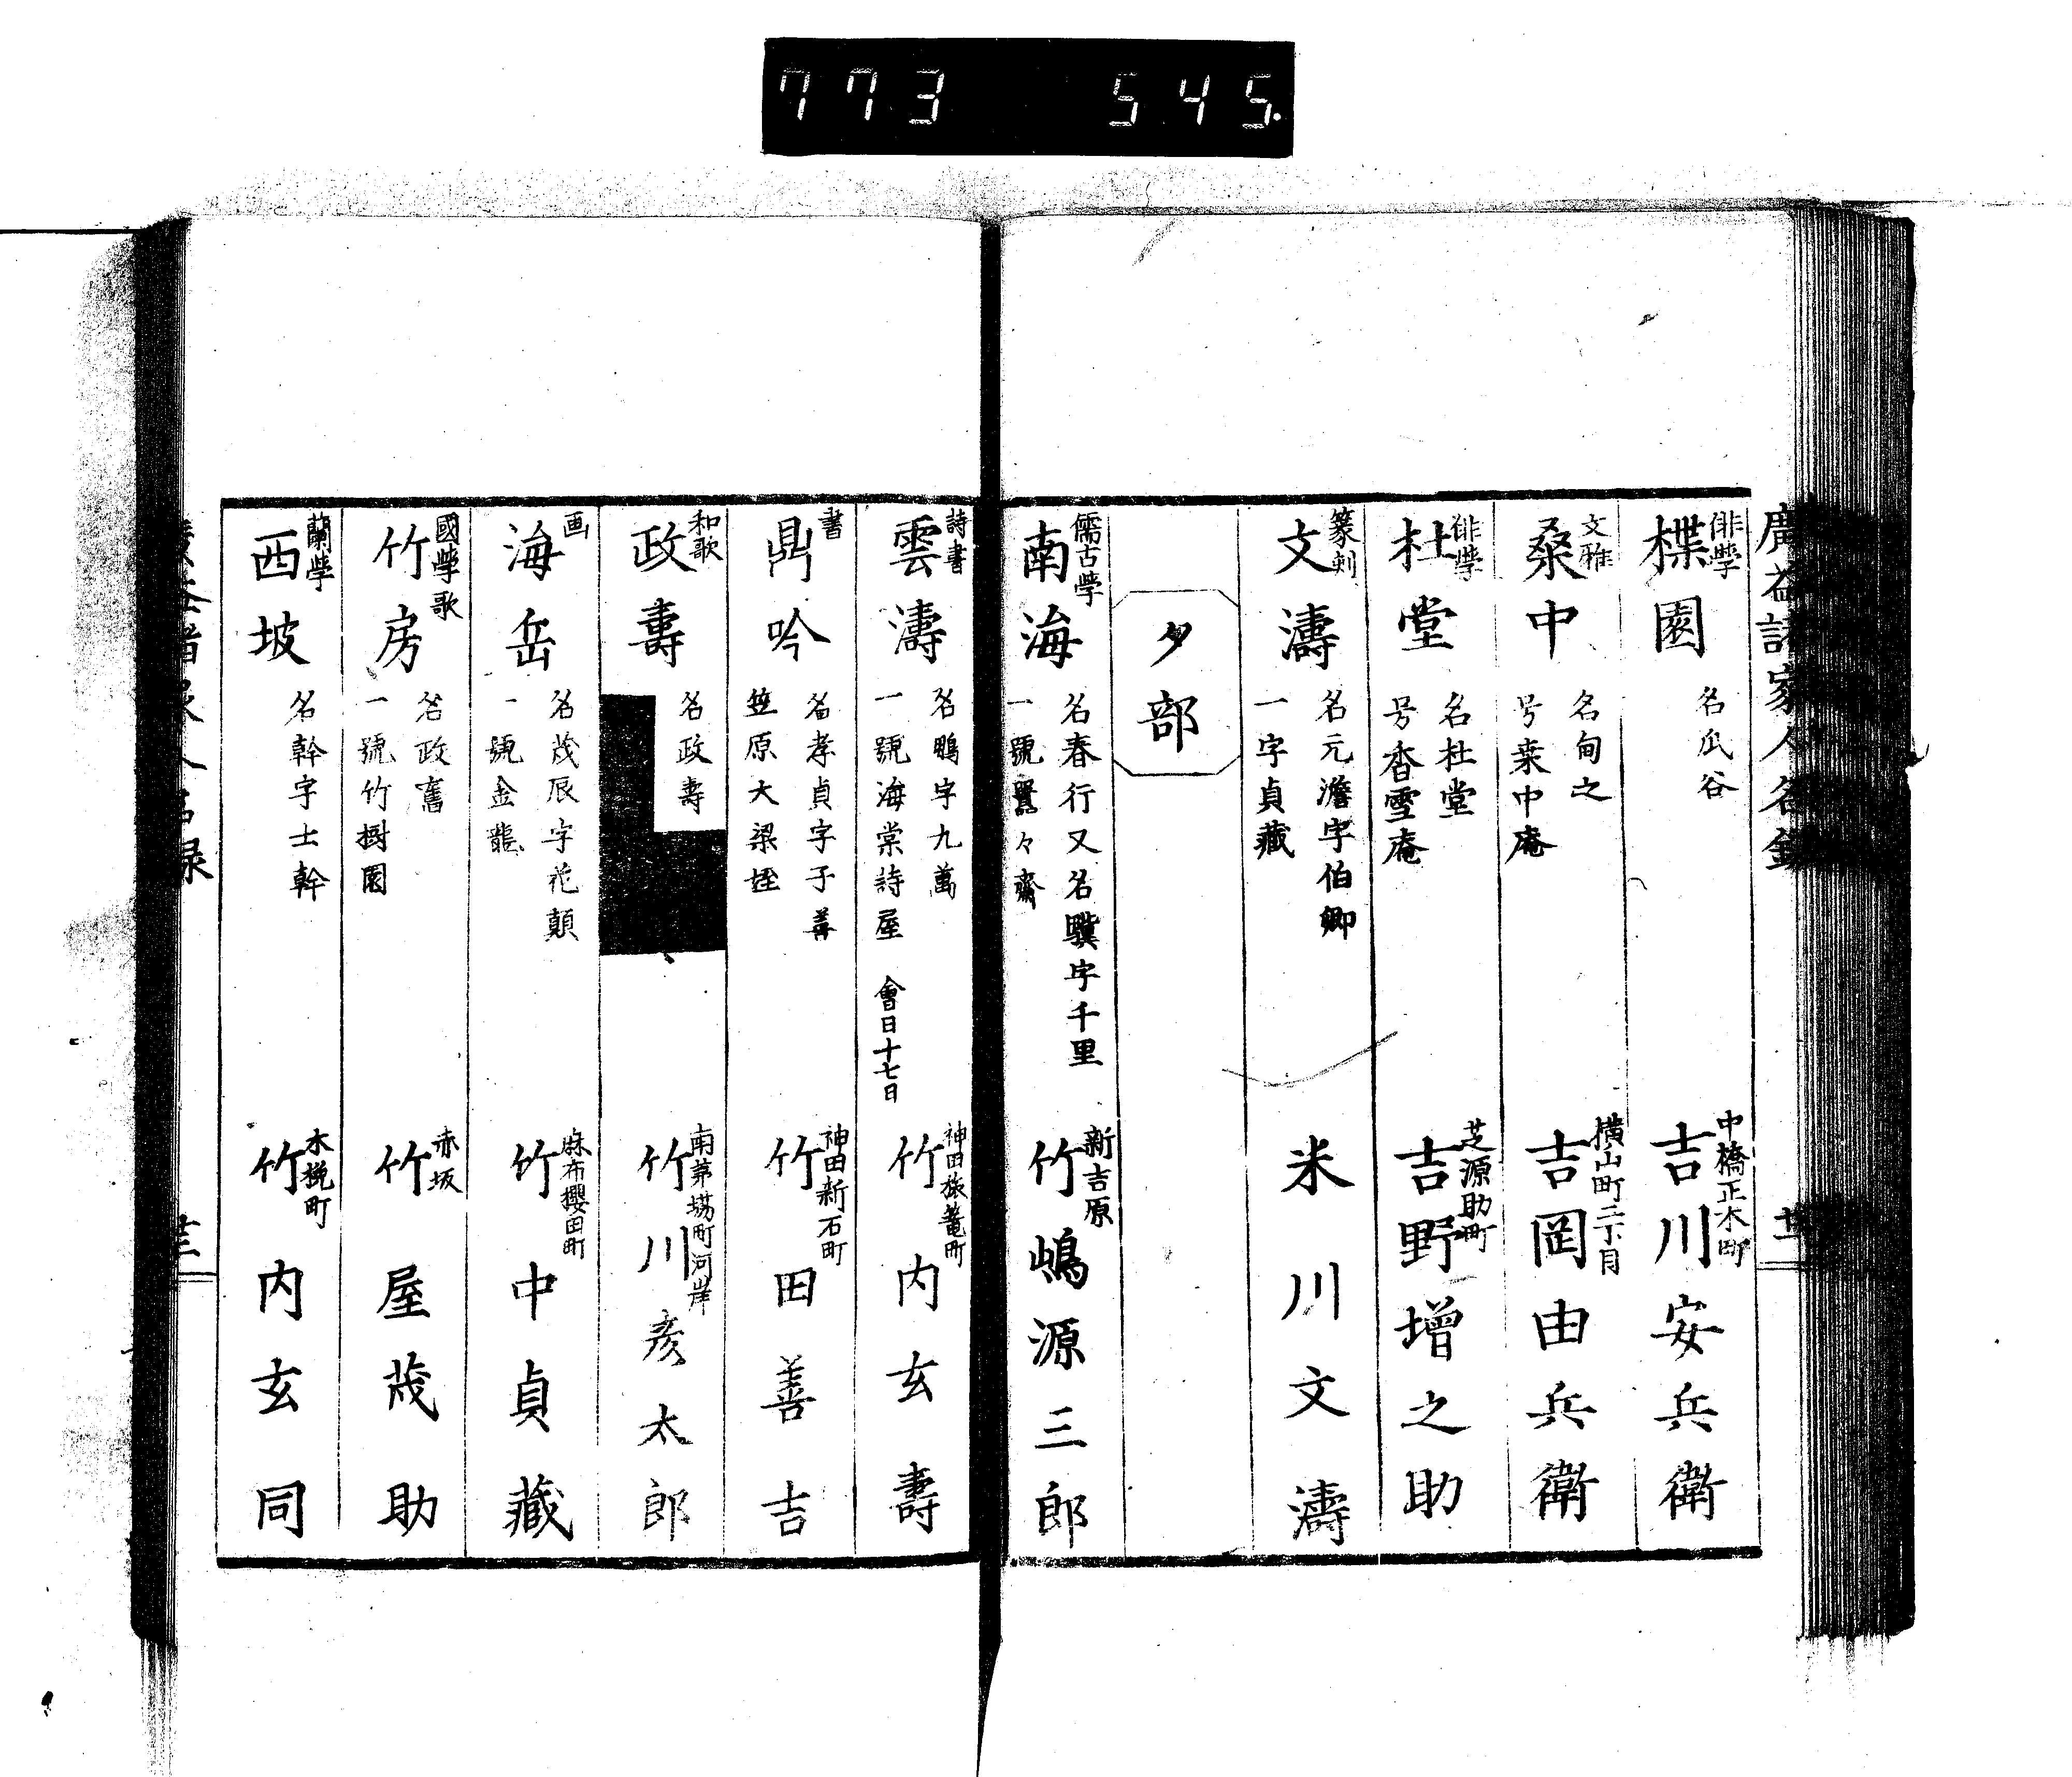 773 545.
廣益諸家人名録
俳學
楪園
名瓜谷
中橋正木町
吉川安兵衛
文雅
桑中
名甸之
号桒中庵
横山町二丁目
吉岡由兵衛
俳學
杜堂
名杜堂
号香雪庵
芝源助町
吉野増之助
篆刻
文濤
名元澹字伯卿
一字貞藏
米川文濤
タ部
儒古學
南海
名春行又名驥字千里
一號囂々齋
新吉原
竹嶋源三郎
詩書
雲濤
名鵬字九萬
一號海棠詩屋
會日十七日
神田旅篭町
竹内玄壽
書
鼎吟
名孝貞字子善
笠原大梁姪
神田新石町
竹田善吉
和歌
政壽
名政壽
南茅塲町河岸
竹川彦太郎
画
海岳
名茂辰字花顛
一號金龍
麻布櫻田町
竹中貞藏
國學歌
竹房
名政舊
一號竹樹園
赤坂
竹屋茂助
蘭學
西坡
名幹字士幹
木挽町
竹内玄同